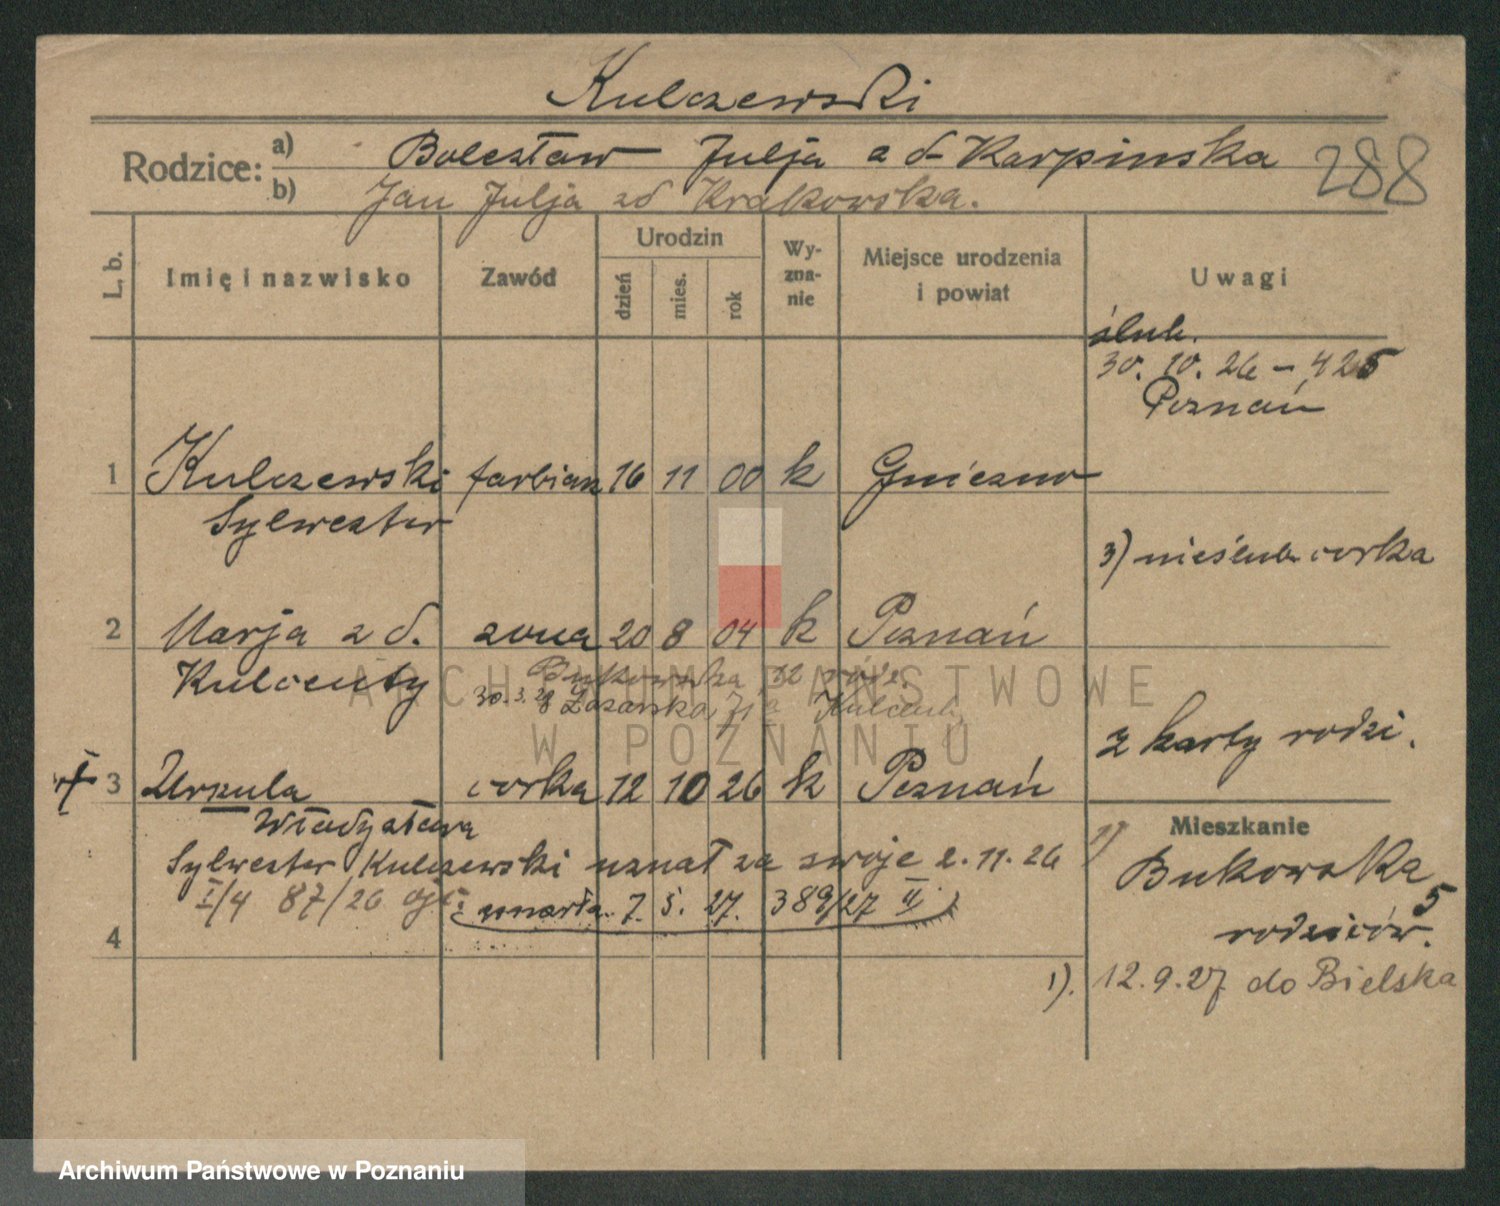 Kulczewski
Rodzice: a) Bolesław Julja z d. Karpinska 288
b) Jan Julja zd Krakowska.
L. b. Imię i nazwisko Zawód Urodzin dzień mies. rok Wy-zna-nie Miejsce urodzenia i powiat Uwagi
ślub.
30. 10. 26 – 425
Poznań
1 Kulczewski farbiarz 16 11 00 k Gniezno
Sylwester
3) nieślub. corka
2 Marja z d. zona 20 8 04 k Poznań
Kulcenty Bukowska 12 rodz.
30.3.28 Łazarska
z karty rodzi.
3 Urszula corka 12 10 26 k Poznań
Władysława
Mieszkanie
Sylwester Kulczewski uznał za swoje 2.11.26
1) Bukowska 5
I/4 87/26
umarła 7. 5. 27. 389/27 II
rodziców.
4
1). 12.9.27 do Bielska
ARCHIWUM PAŃSTWOWE
W POZNANIU
Archiwum Państwowe w Poznaniu